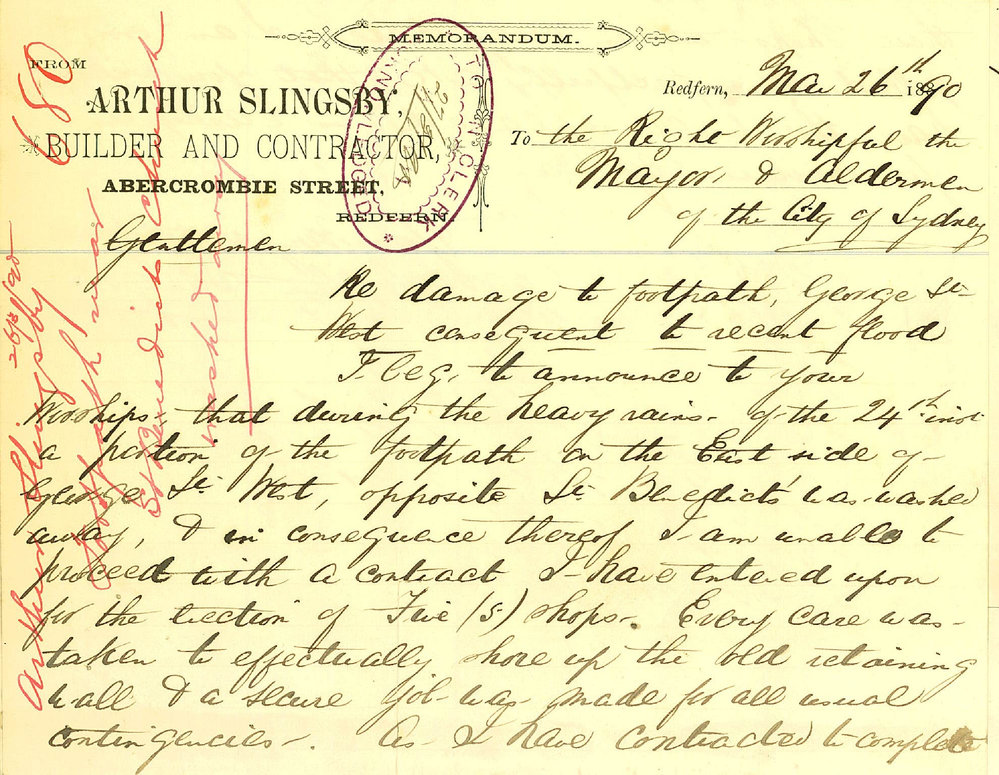 MEMORANDUM.
FROM
ARTHUR SLINGSBY,
BUILDER AND CONTRACTOR,
ABERCROMBIE STREET,
REDFERN
Redfern, Mar 26th 1890
To the Right Worshipful the
Mayor & Aldermen
of the City of Sydney
TOWN CLERK
680
Arthur Slingsby 26/3/90
footpath near
St Benedicts Church
washed away
Gentlemen
Re damage to footpath, George St
West consequent to recent flood
I beg, to announce to your
Worships that during the heavy rains of the 24th inst
a portion of the footpath on the East side of
George St West, opposite St Benedicts' was washed
away, & in consequence thereof I am unable to
proceed with a contract I have entered upon
for the erection of Five (5) shops. Every care was
taken to effectually shore up the old retaining
wall & a secure job was made for all usual
contingencies. As I have contracted to complete